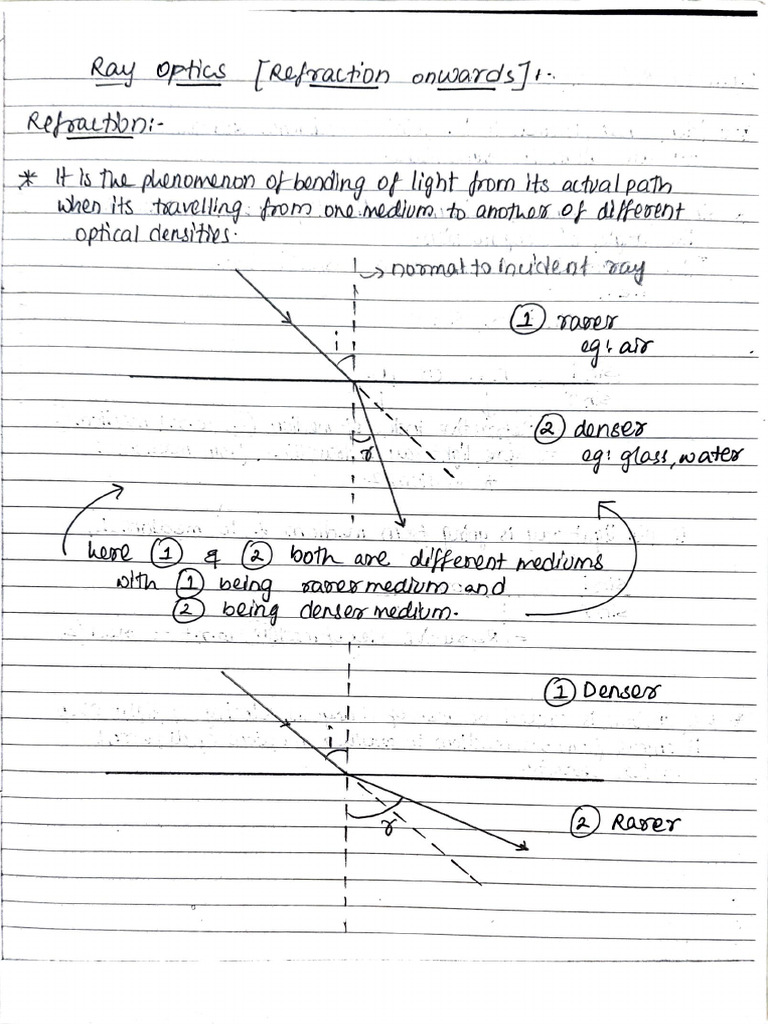 Ray Optics [Refraction onwards]:-
Refraction:-
* It is the phenomenon of bending of light from its actual path
when its travelling from one medium to another of different
optical densities.
→ normal to incident ray
① rarer
eg: air
i
② denser
eg: glass, water
r
here ① & ② both are different mediums
with ① being rarer medium and
② being denser medium.
① Denser
i
② Rarer
r